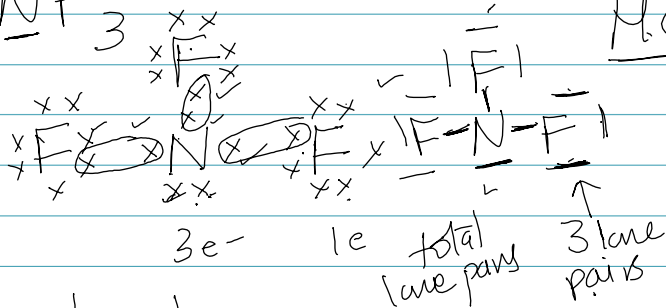 NF3
F
F N F |F-N-F|
|F|
3e- 1e total lone pairs
3 lone pairs